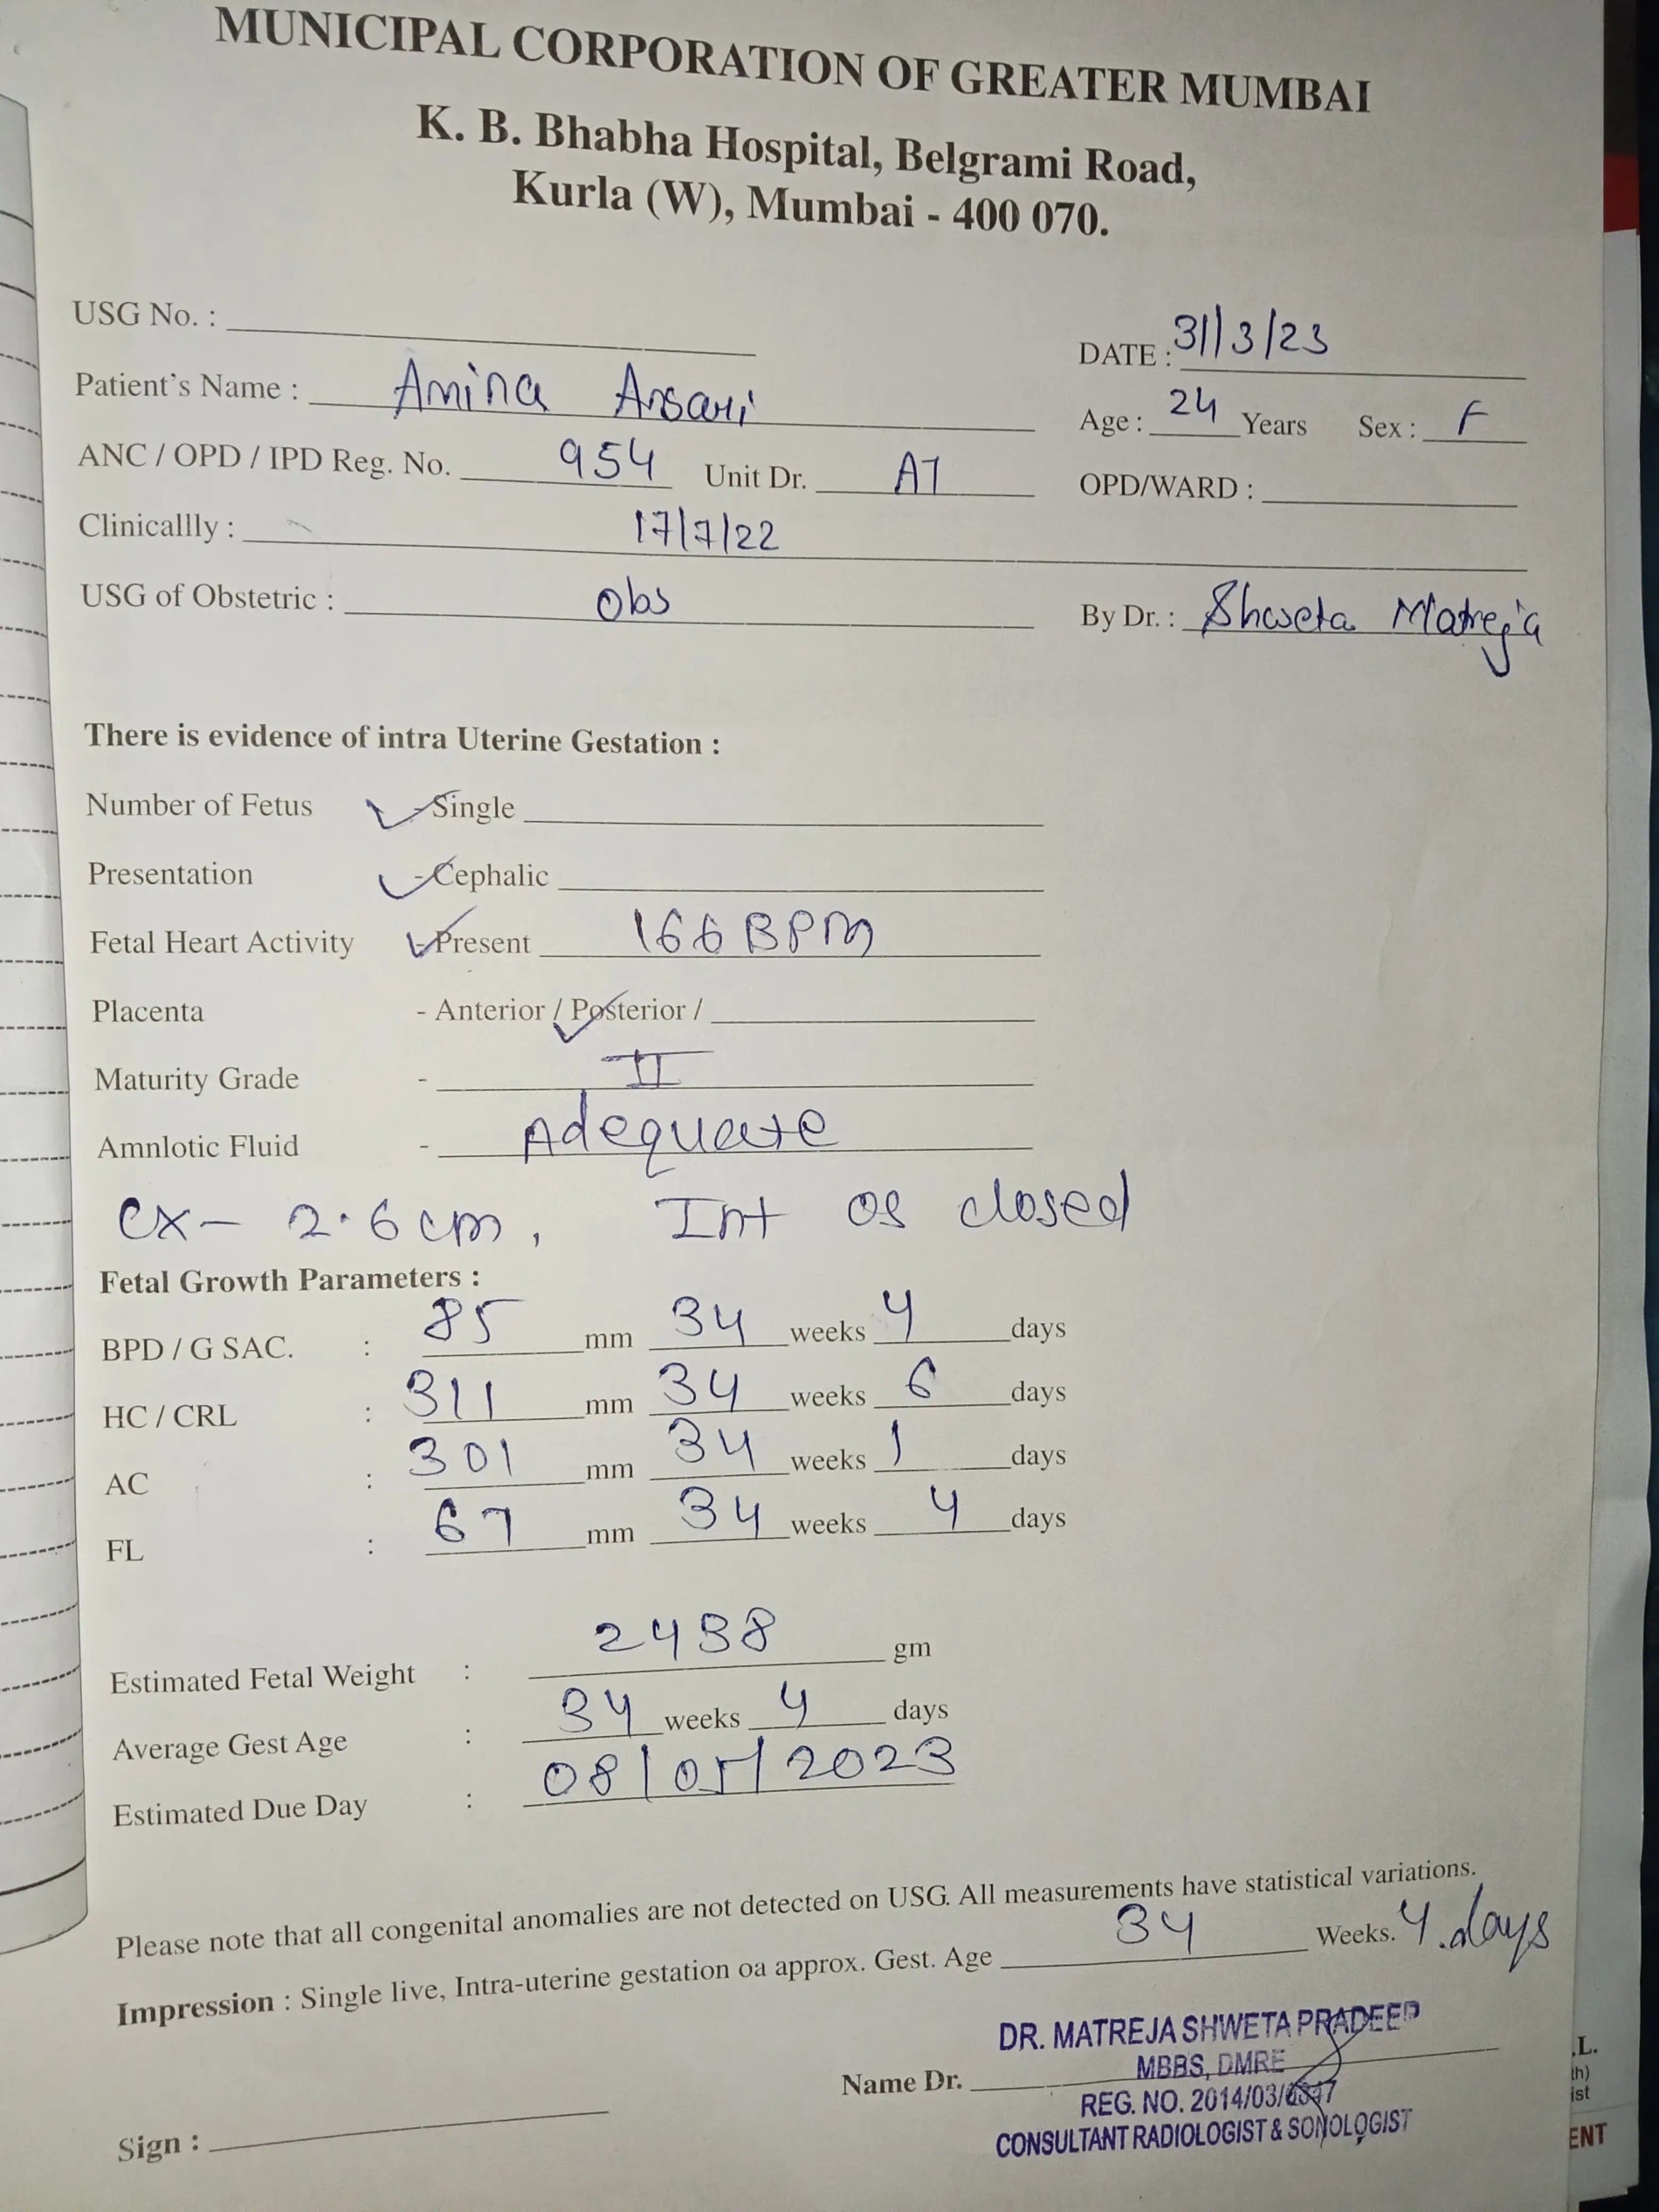 MUNICIPAL CORPORATION OF GREATER MUMBAI
K. B. Bhabha Hospital, Belgrami Road,
Kurla (W), Mumbai - 400 070.
USG No. :
DATE : 31/3/23
Patient's Name : Amina Ansari
Age : 24 Years Sex : F
ANC / OPD / IPD Reg. No. 954 Unit Dr. A1
OPD/WARD :
Clinicallly : 17/7/22
USG of Obstetric : Obs
By Dr. : Shweta Matreja
There is evidence of intra Uterine Gestation :
Number of Fetus - Single
Presentation - Cephalic
Fetal Heart Activity - Present 166 BPM
Placenta - Anterior / Posterior /
Maturity Grade - II
Amnlotic Fluid - Adequate
CX - 2.6 cm, Int os closed
Fetal Growth Parameters :
BPD / G SAC. : 85 mm 34 weeks 4 days
HC / CRL : 311 mm 34 weeks 6 days
AC : 301 mm 34 weeks 1 days
FL : 67 mm 34 weeks 4 days
Estimated Fetal Weight : 2438 gm
Average Gest Age : 34 weeks 4 days
Estimated Due Day : 08/05/2023
Please note that all congenital anomalies are not detected on USG. All measurements have statistical variations.
Impression : Single live, Intra-uterine gestation oa approx. Gest. Age 34 Weeks. 4 days
DR. MATREJA SHWETA PRADEEP
MBBS, DMRE
Name Dr.
REG. NO. 2014/03/
CONSULTANT RADIOLOGIST & SONOLOGIST
Sign :
.L.
th)
ist
ENT